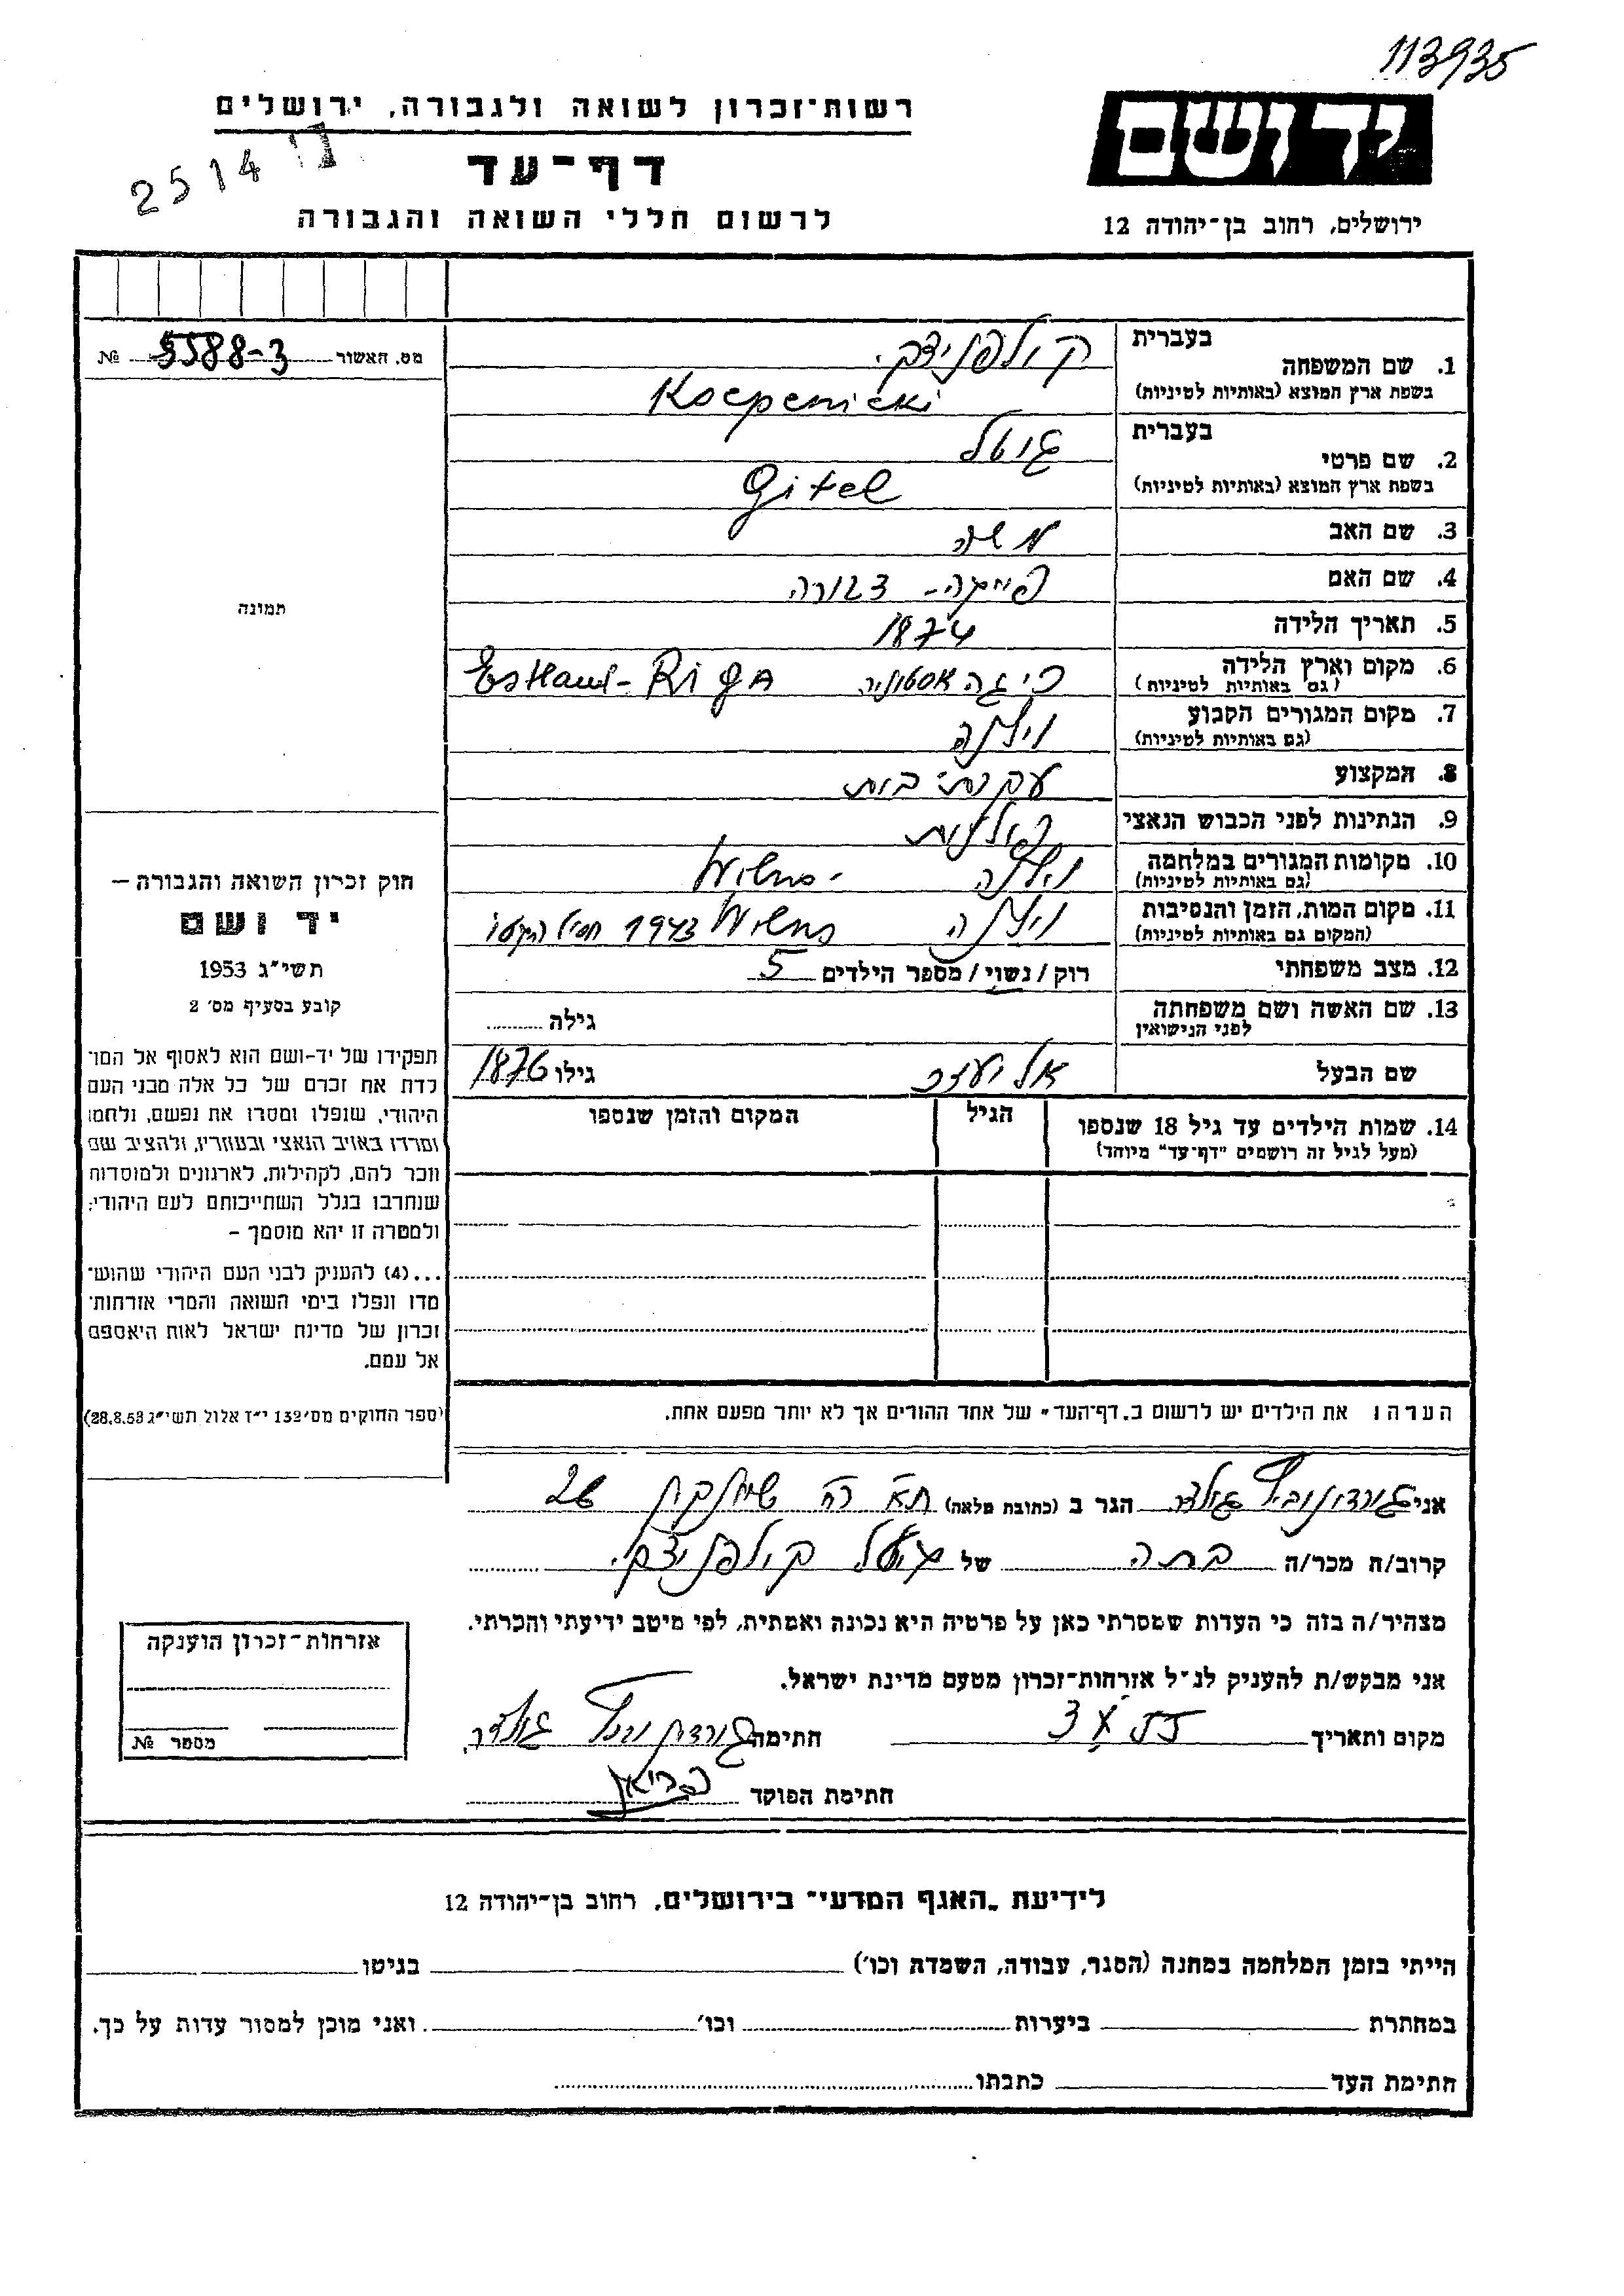 113935
רשות־זכרון לשואה ולגבורה, ירושלים
יד ושם
2514
דף־עד
לרשום חללי השואה והגבורה
ירושלים, רחוב בן־יהודה 12
מס. האשור 5588-3 №
בעברית
1. שם המשפחה
בשפת ארץ המוצא (באותיות לטיניות) Koepenicki
בעברית גיטל
2. שם פרטי
בשפת ארץ המוצא (באותיות לטיניות) Gitel
3. שם האב משה
4. שם האם פייגה-
5. תאריך הלידה 1874
6. מקום וארץ הלידה ריגה אסטוניה Estland-Riga
(גם באותיות לטיניות)
7. מקום המגורים הקבוע וילנה
(גם באותיות לטיניות)
8. המקצוע עקרת בית
9. הנתינות לפני הכבוש הנאצי פולנית
10. מקומות המגורים במלחמה וילנה - Wilno
(גם באותיות לטיניות)
11. מקום המות, הזמן והנסיבות וילנה Wilno 1943
(המקום גם באותיות לטיניות)
12. מצב משפחתי רוק / נשוי / מספר הילדים 5
13. שם האשה ושם משפחתה
לפני הנישואין גילה
שם הבעל אליעזר גילו 1876
14. שמות הילדים עד גיל 18 שנספו הגיל המקום והזמן שנספו
(מעל לגיל זה רושמים "דף־עד" מיוחד)
הערה: את הילדים יש לרשום ב„דף־העד" של אחד ההורים אך לא יותר מפעם אחת.
תמונה
חוק זכרון השואה והגבורה –
יד ושם
תשי"ג 1953
קובע בסעיף מס' 2
תפקידו של יד-ושם הוא לאסוף אל המו־
לדת את זכרם של כל אלה מבני העם
היהודי, שנפלו ומסרו את נפשם, נלחמו
ומרדו באויב הנאצי ובעוזריו, ולהציב שם
וזכר להם, לקהילות, לארגונים ולמוסדות
שנחרבו בגלל השתייכותם לעם היהודי;
ולמטרה זו יהא מוסמך –
...(4) להעניק לבני העם היהודי שהוש־
מדו ונפלו בימי השואה והמרי אזרחות־
זכרון של מדינת ישראל לאות היאספם
אל עמם.
(ספר החוקים מס' 132 י"ז אלול תשי"ג 28.8.53)
אני הגר ב (כתובת מלאה) ת"א רח 26
קרוב/ת מכר/ה בתה של
מצהיר/ה בזה כי העדות שמסרתי כאן על פרטיה היא נכונה ואמתית, לפי מיטב ידיעתי והכרתי.
אני מבקש/ת להעניק לנ"ל אזרחות־זכרון מטעם מדינת ישראל.
מקום ותאריך חתימה
חתימת הפוקד
אזרחות־זכרון הוענקה
מספר №
לידיעת „האגף המדעי" בירושלים, רחוב בן־יהודה 12
הייתי בזמן המלחמה במחנה (הסגר, עבודה, השמדת וכו') בגיטו
במחתרת ביערות וכו' ואני מוכן למסור עדות על כך.
חתימת העד כתבתו